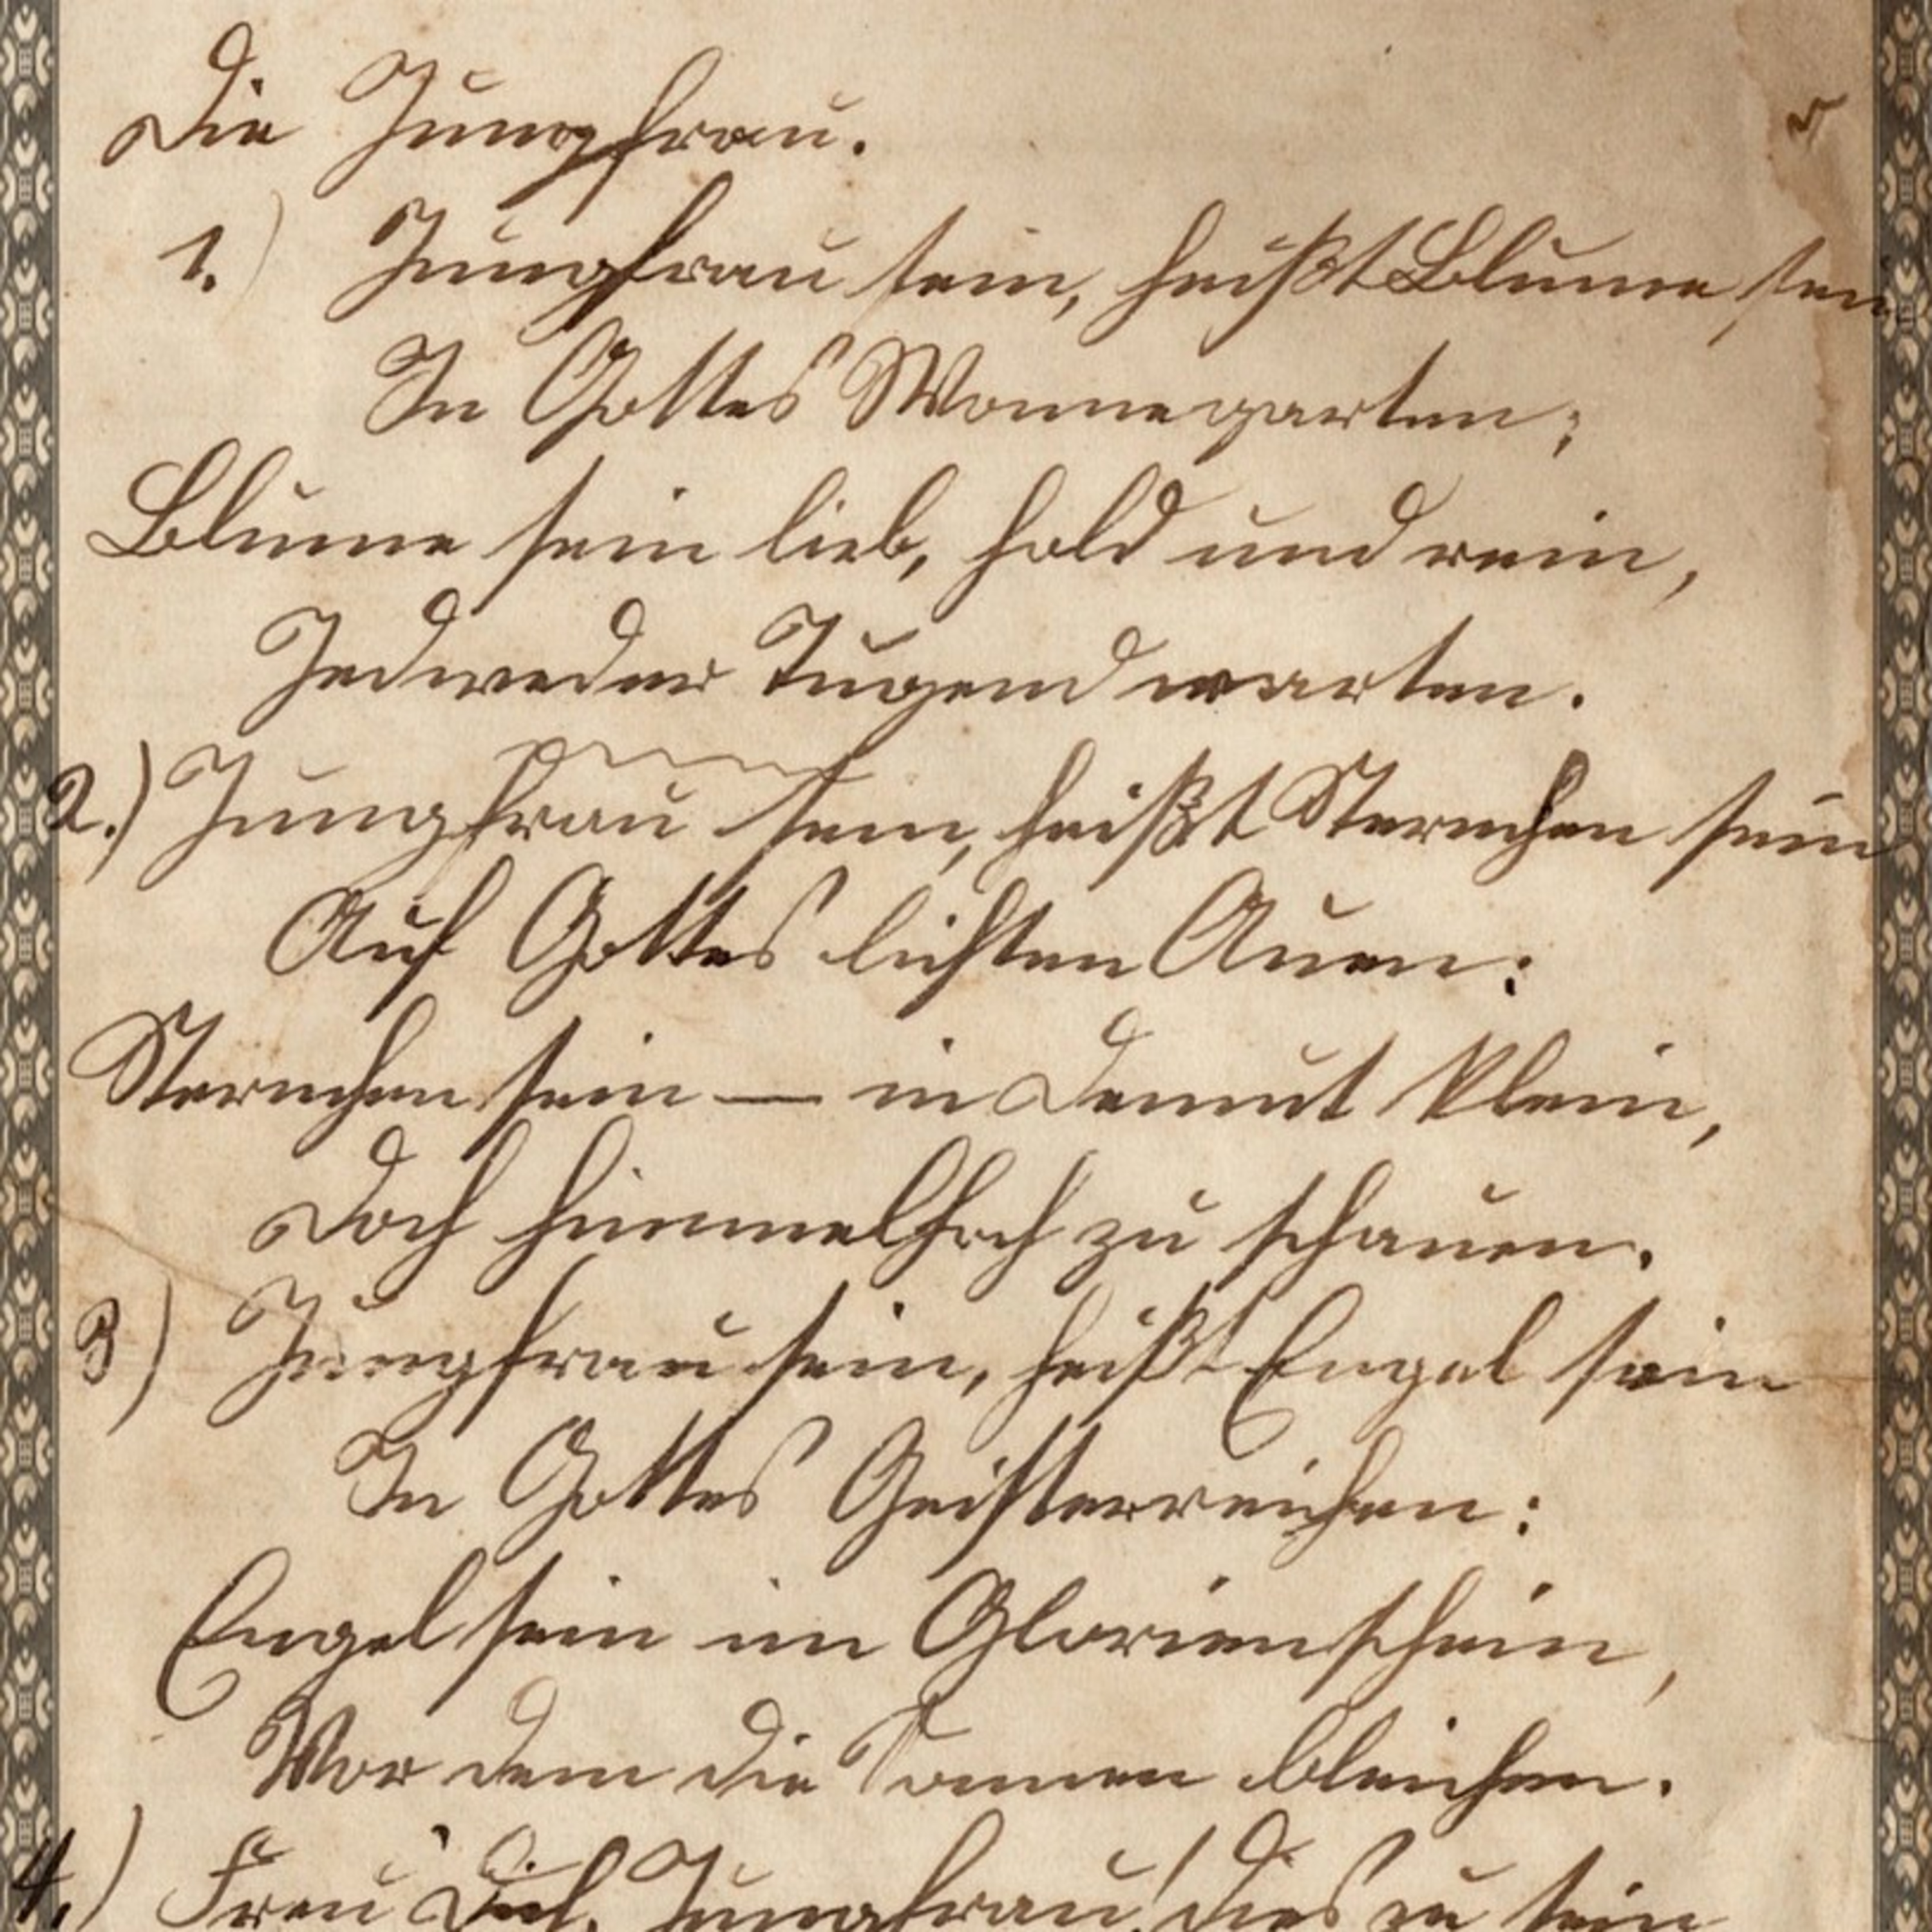 Die Jungfrau.
1.) Jungfrau sein, heißt Blume sein
In Gottes Wonnegarten;
Blume sein lieb, hold und rein,
Jedweder Tugend warten.
2.) Jungfrau sein, heißt Sternchen sein
Auf Gottes lichten Auen:
Sternchen sein — in Demut klein,
Doch himmelhoch zu schauen.
3) Jungfrau sein, heißt Engel sein
In Gottes Geisterreichen:
Engel sein im Glorienschein,
Vor dem die Sonnen bleichen.
4.) Freu Dich, Jungfrau! dies zu sein